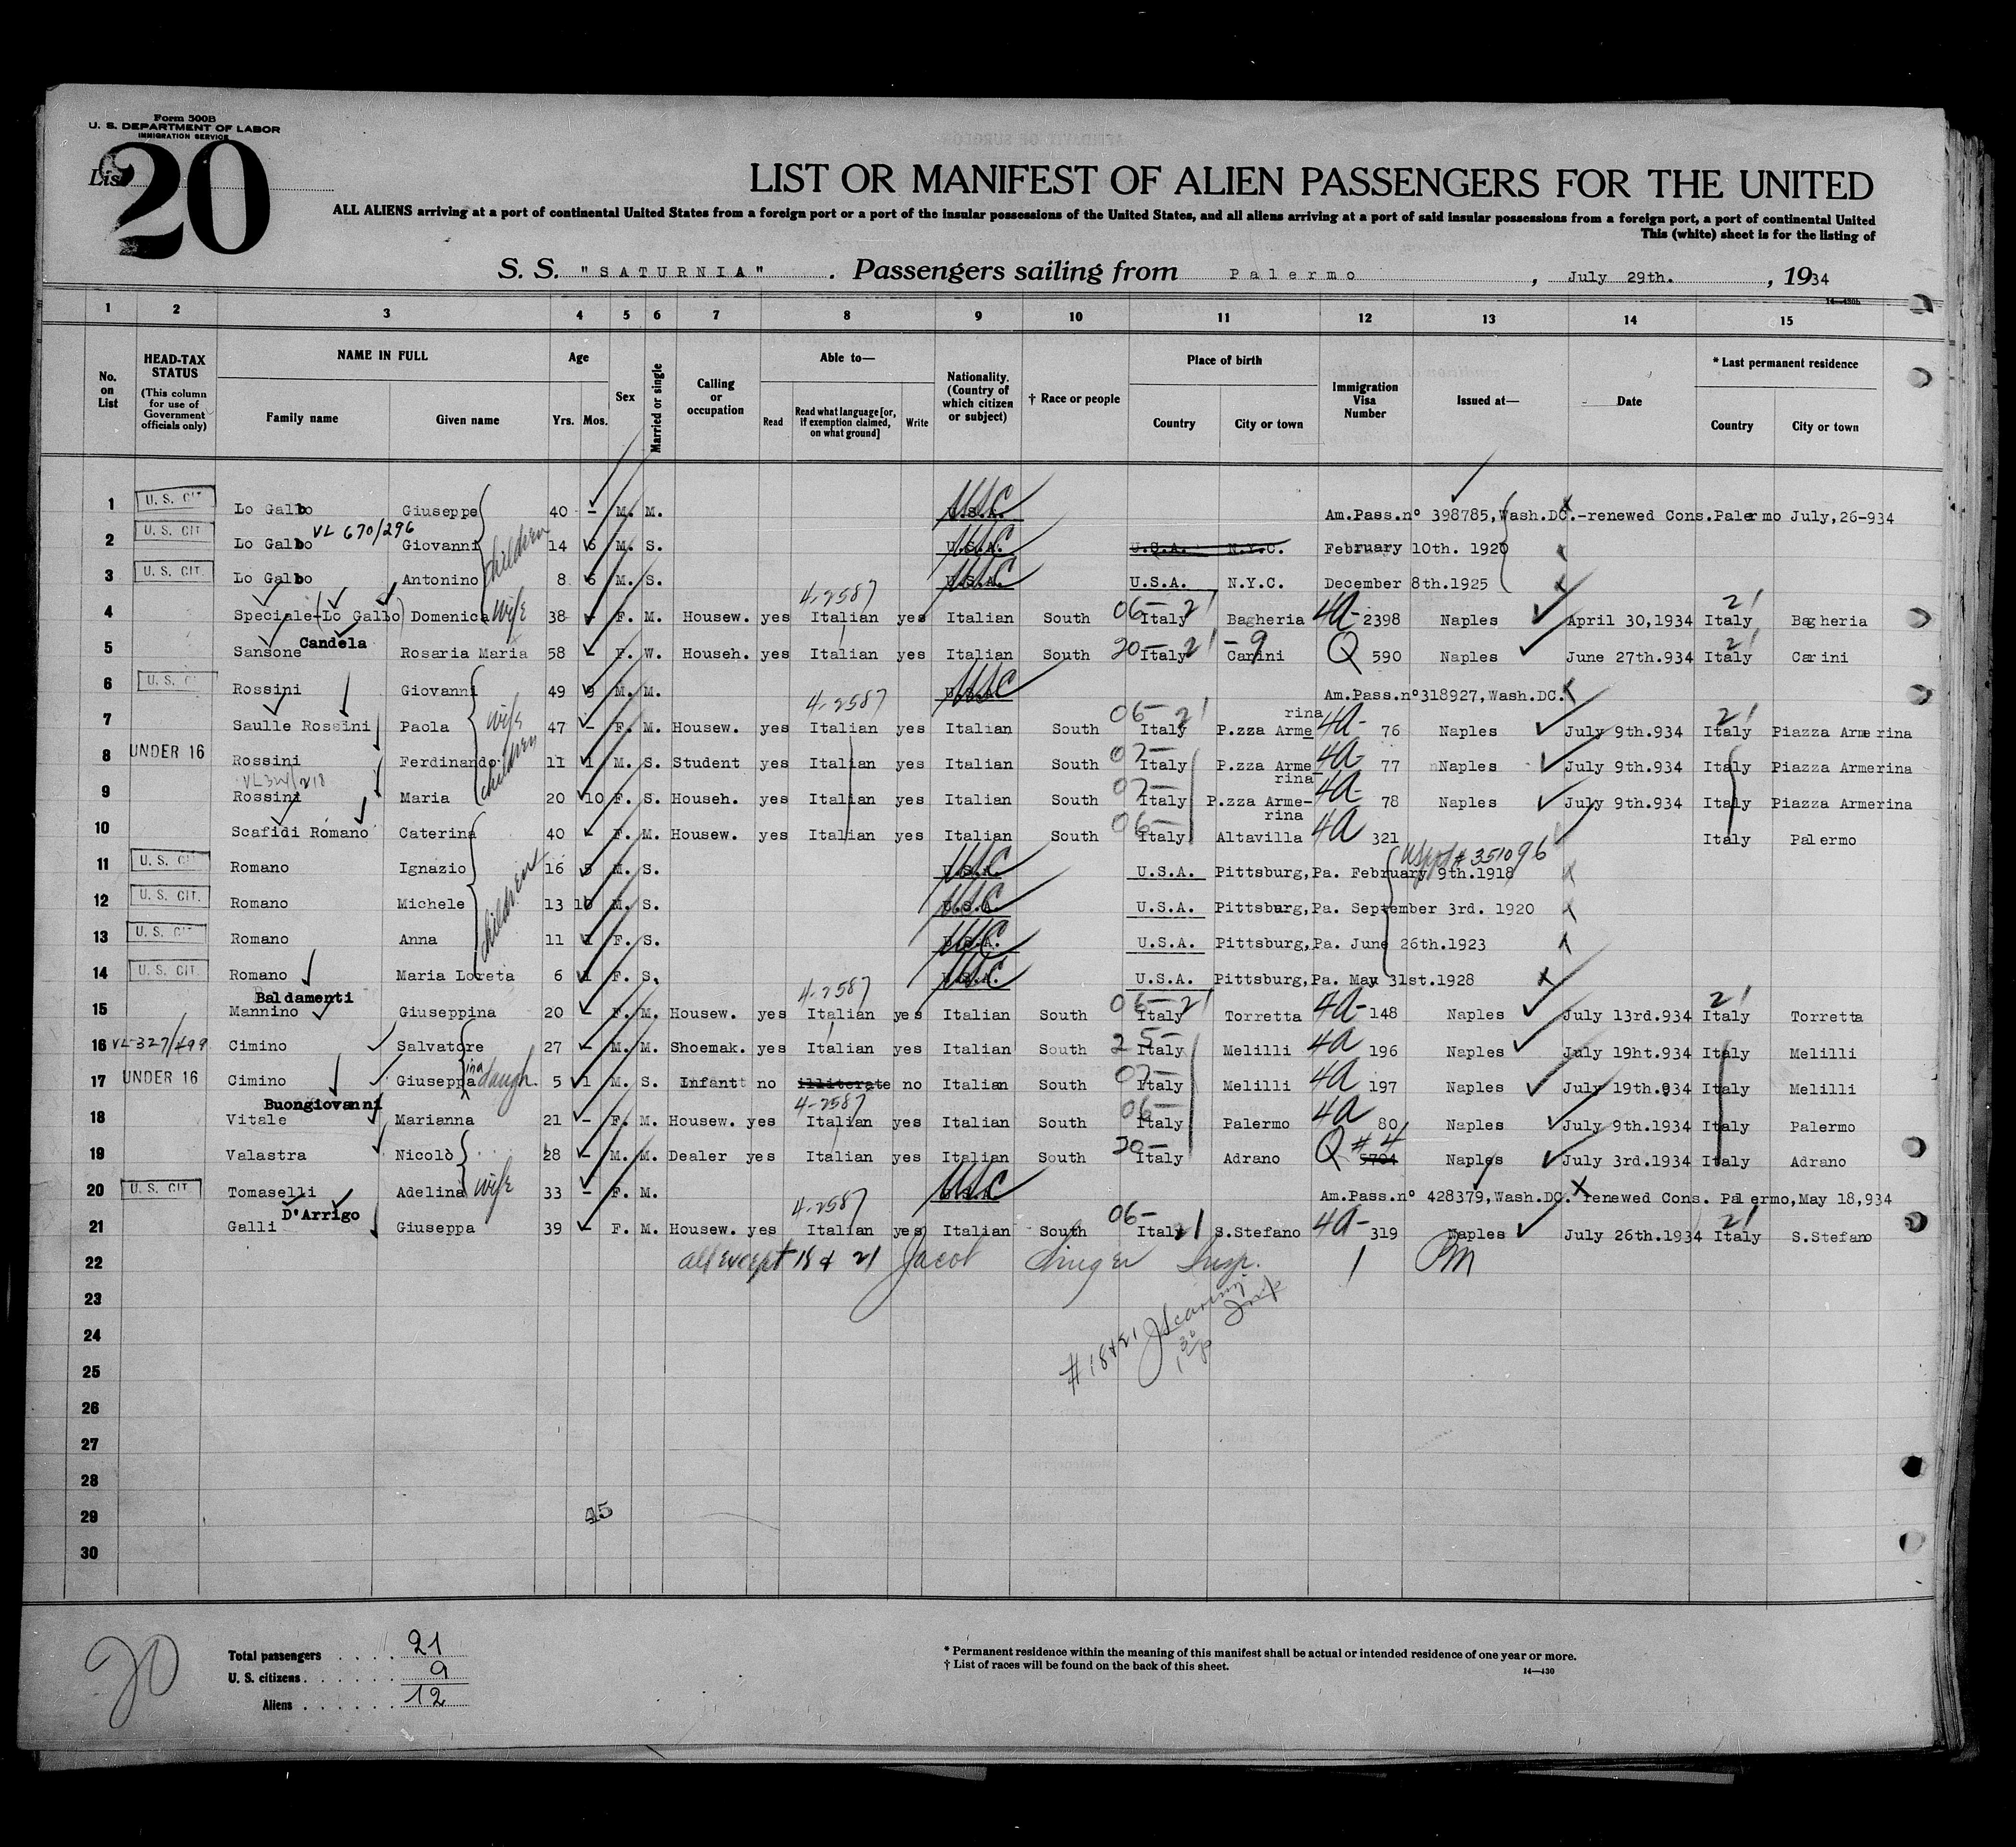 Form 500B
U. S. DEPARTMENT OF LABOR
IMMIGRATION SERVICE
List 20
LIST OR MANIFEST OF ALIEN PASSENGERS FOR THE UNITED
ALL ALIENS arriving at a port of continental United States from a foreign port or a port of the insular possessions of the United States, and all aliens arriving at a port of said insular possessions from a foreign port, a port of continental United
This (white) sheet is for the listing of
S. S. "SATURNIA" . Passengers sailing from Palermo , July 29th. , 1934
1 2 3 4 5 6 7 8 9 10 11 12 13 14 15
No. on List HEAD-TAX STATUS (This column for use of Government officials only) NAME IN FULL Family name Given name Age Yrs. Mos. Sex Married or single Calling or occupation Able to— Read Read what language [or, if exemption claimed, on what ground] Write Nationality. (Country of which citizen or subject) † Race or people Place of birth Country City or town Immigration Visa Number Issued at— Date * Last permanent residence Country City or town
1 U. S. CIT Lo Gallo Giuseppe 40 - M. M. U.S.A. USC Am.Pass.nº 398785,Wash.DC.-renewed Cons.Palermo July,26-934
VL 670/296
2 U. S. CIT Lo Gallo Giovanni children 14 6 M. S. U.S.A. USC U.S.A. N.Y.C. February 10th. 1920
3 U. S. CIT. Lo Gallo Antonino 8 6 M. S. U.S.A. USC U.S.A. N.Y.C. December 8th.1925
4-2587
4 Speciale-(Lo Gallo) Domenica wife 38 - F. M. Housew. yes Italian yes Italian South 06- Italy 21 Bagheria 4a- 2398 Naples April 30,1934 Italy 21 Bagheria
Candela
5 Sansone Rosaria Maria 58 - F. W. Househ. yes Italian yes Italian South 20- Italy 21 -9 Carini Q 590 Naples June 27th.934 Italy 21 Carini
6 U. S. C Rossini Giovanni 49 9 M. M. U.S.A. USC Am.Pass.nº318927,Wash.DC.
4-2587
7 Saulle Rossini Paola wife 47 - F. M. Housew. yes Italian yes Italian South 06- Italy 21 P.zza Armerina 4a- 76 Naples July 9th.934 Italy 21 Piazza Armerina
8 UNDER 16 Rossini Ferdinando children 11 1 M. S. Student yes Italian yes Italian South 07- Italy P.zza Armerina 4a- 77 Naples July 9th.934 Italy Piazza Armerina
9 Rossini Maria 20 10 F. S. Househ. yes Italian yes Italian South 07- Italy P.zza Arme-rina 4a- 78 Naples July 9th.934 Italy Piazza Armerina
10 Scafidi Romano Caterina 40 - F. M. Housew. yes Italian yes Italian South 06- Italy Altavilla 4a 321 Italy Palermo
# 351096
11 U. S. CIT Romano Ignazio 16 5 M. S. U.S.A. USC U.S.A. Pittsburg,Pa. February 9th.1918
12 U. S. CIT. Romano Michele children 13 10 M. S. U.S.A. USC U.S.A. Pittsburg,Pa. September 3rd. 1920
13 U. S. CIT. Romano Anna 11 1 F. S. U.S.A. USC U.S.A. Pittsburg,Pa. June 26th.1923
14 U. S. CIT. Romano Maria Loreta 6 1 F. S. U.S.A. USC U.S.A. Pittsburg,Pa. May 31st.1928
Baldamenti 4-2587
15 Mannino Giuseppina 20 - F. M. Housew. yes Italian yes Italian South 06- Italy 21 Torretta 4a- 148 Naples July 13rd.934 Italy 21 Torretta
16 VL-327/499 Cimino Salvatore 27 - M. M. Shoemak. yes Italian yes Italian South 25- Italy Melilli 4a 196 Naples July 19ht.934 Italy Melilli
17 UNDER 16 Cimino Giuseppa ina daugh. 5 1 M. S. Infantt no illiterate no Italian South 07- Italy Melilli 4a 197 Naples July 19th.934 Italy Melilli
Buongiovanni 4-2587
18 Vitale Marianna 21 - F. M. Housew. yes Italian yes Italian South 06- Italy Palermo 4a 80 Naples July 9th.1934 Italy Palermo
19 Valastra Nicolò 28 - M. M. Dealer yes Italian yes Italian South 30- Italy Adrano Q #4 5704 Naples July 3rd.1934 Italy Adrano
20 U. S. CIT. Tomaselli Adelina wife 33 - F. M. U.S.A USC Am.Pass.nº 428379,Wash.DC. renewed Cons. Palermo,May 18,934
D'Arrigo 4-2587
21 Galli Giuseppa 39 - F. M. Housew. yes Italian yes Italian South 06- Italy 21 S.Stefano 4a- 319 Naples July 26th.1934 Italy 21 S.Stefano
22 all except 18 & 21 Jacob Singer Insp.
23
24
#18&21
25
26
27
28
29 45
30
20
Total passengers . . . . 21
U. S. citizens . . . . . . 9
Aliens . . . . . . 12
* Permanent residence within the meaning of this manifest shall be actual or intended residence of one year or more.
† List of races will be found on the back of this sheet.
14—430